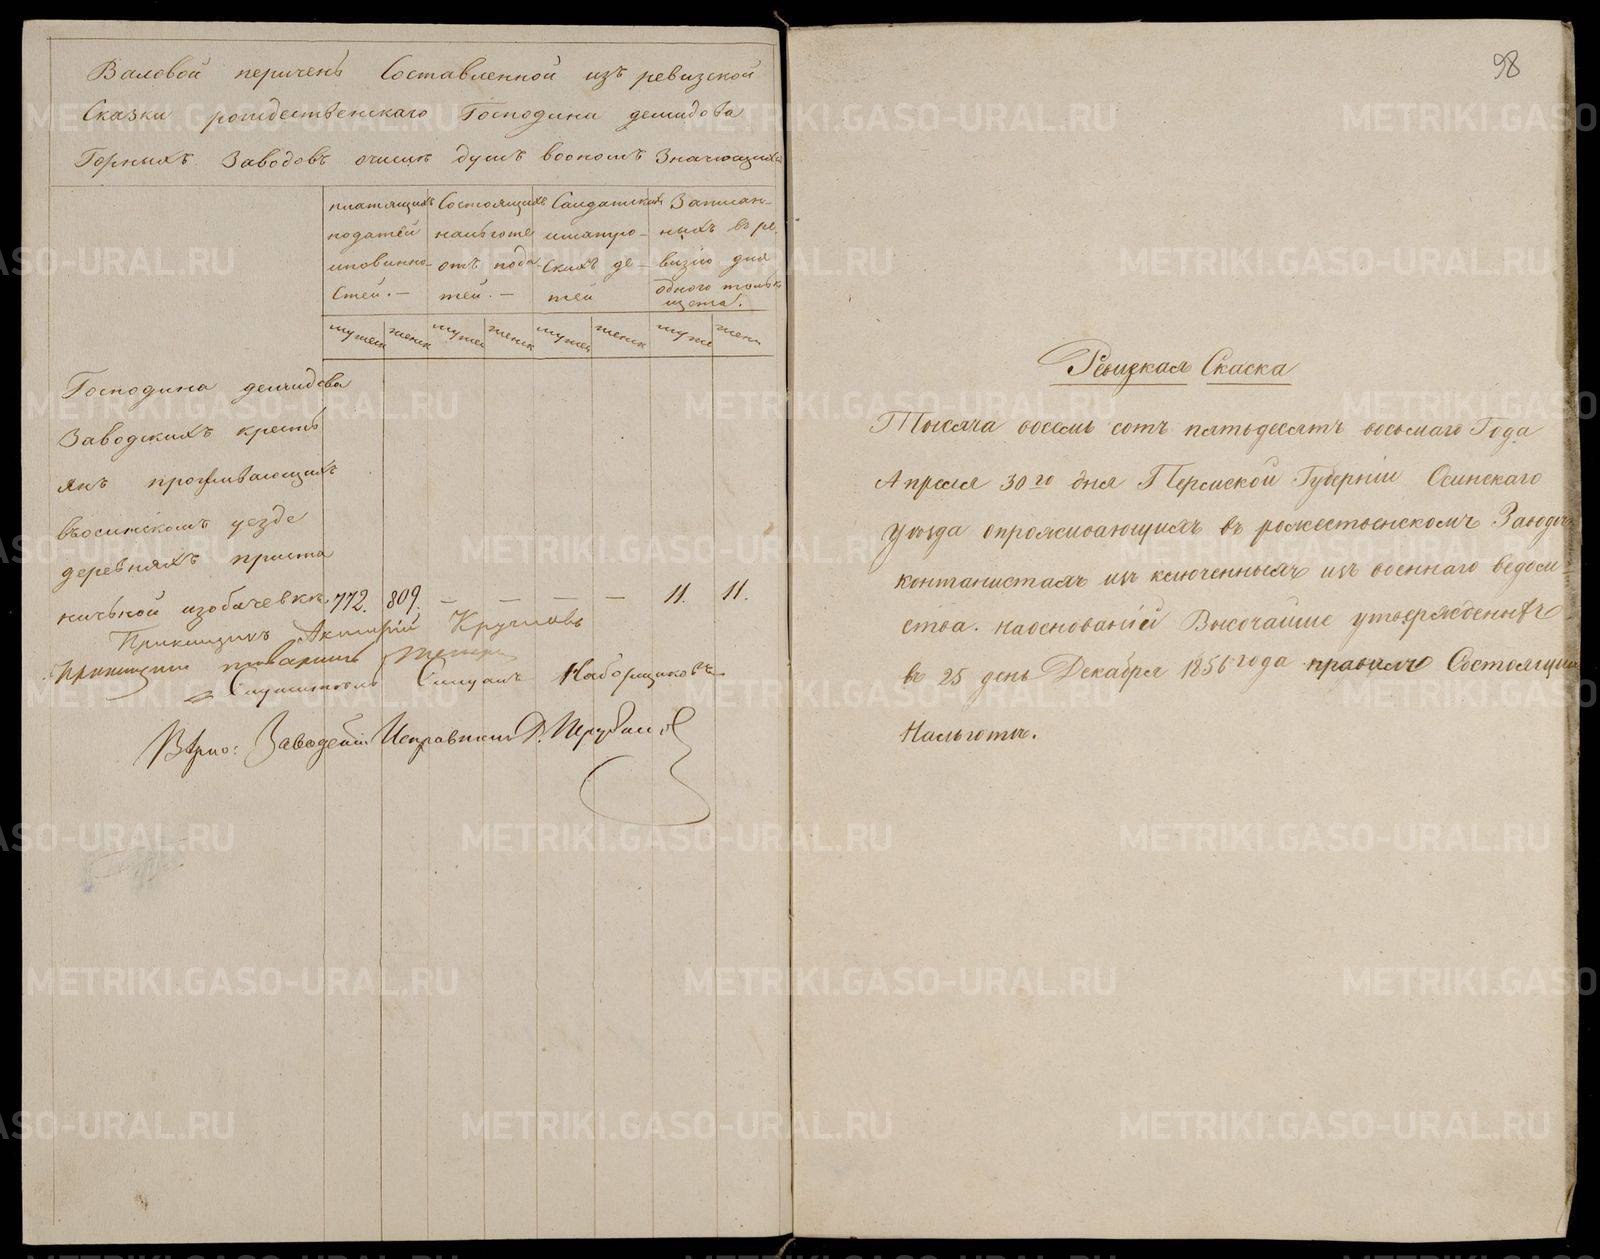 Валовой перичень Составленной изъ ревизской
Сказки рождественскаго Господина демидова
Горныхъ Заводовъ очисле душъ воономъ Значющихся
платящихъ
податей
иповинно-
стей.-
Состоящихъ
нальготе
отъ пода
тей.-
Салдатскихъ
иматро-
скихъ де-
тей
Записан-
ныхъ въ ре
визию для
одного тольк
щета.
мужеск
женск
мужес
женск
мужес
женск
муже
женс
Господина демидова
Заводскихъ кресть
янъ проживающихъ
въосинскомъ уезде
деревняхъ приста
ничьной изобачевке 772. 809. — — — — 11. 11.
Прикащикъ Акинфий Кругловъ
Прикащичи товарищъ
Служитель Симуанъ Наборщиковъ
Врио: Заводский Исправникъ
98
Ревизкая Скаска
Тысяча восемь сотъ пятьдесятъ восьмаго Года
Апреля 30го дня Пермской Губернии Осинскаго
уѣзда опроживающихъ въ рожественскомъ Заводе
контанистахъ изъ ключенныхъ изъ военнаго ведом
ства. наоснованией Высочайше утвержденыхъ
въ 25 день Декабря 1856 года правилъ Состоящих
Нальготы.
METRIKI.GASO-URAL.RU